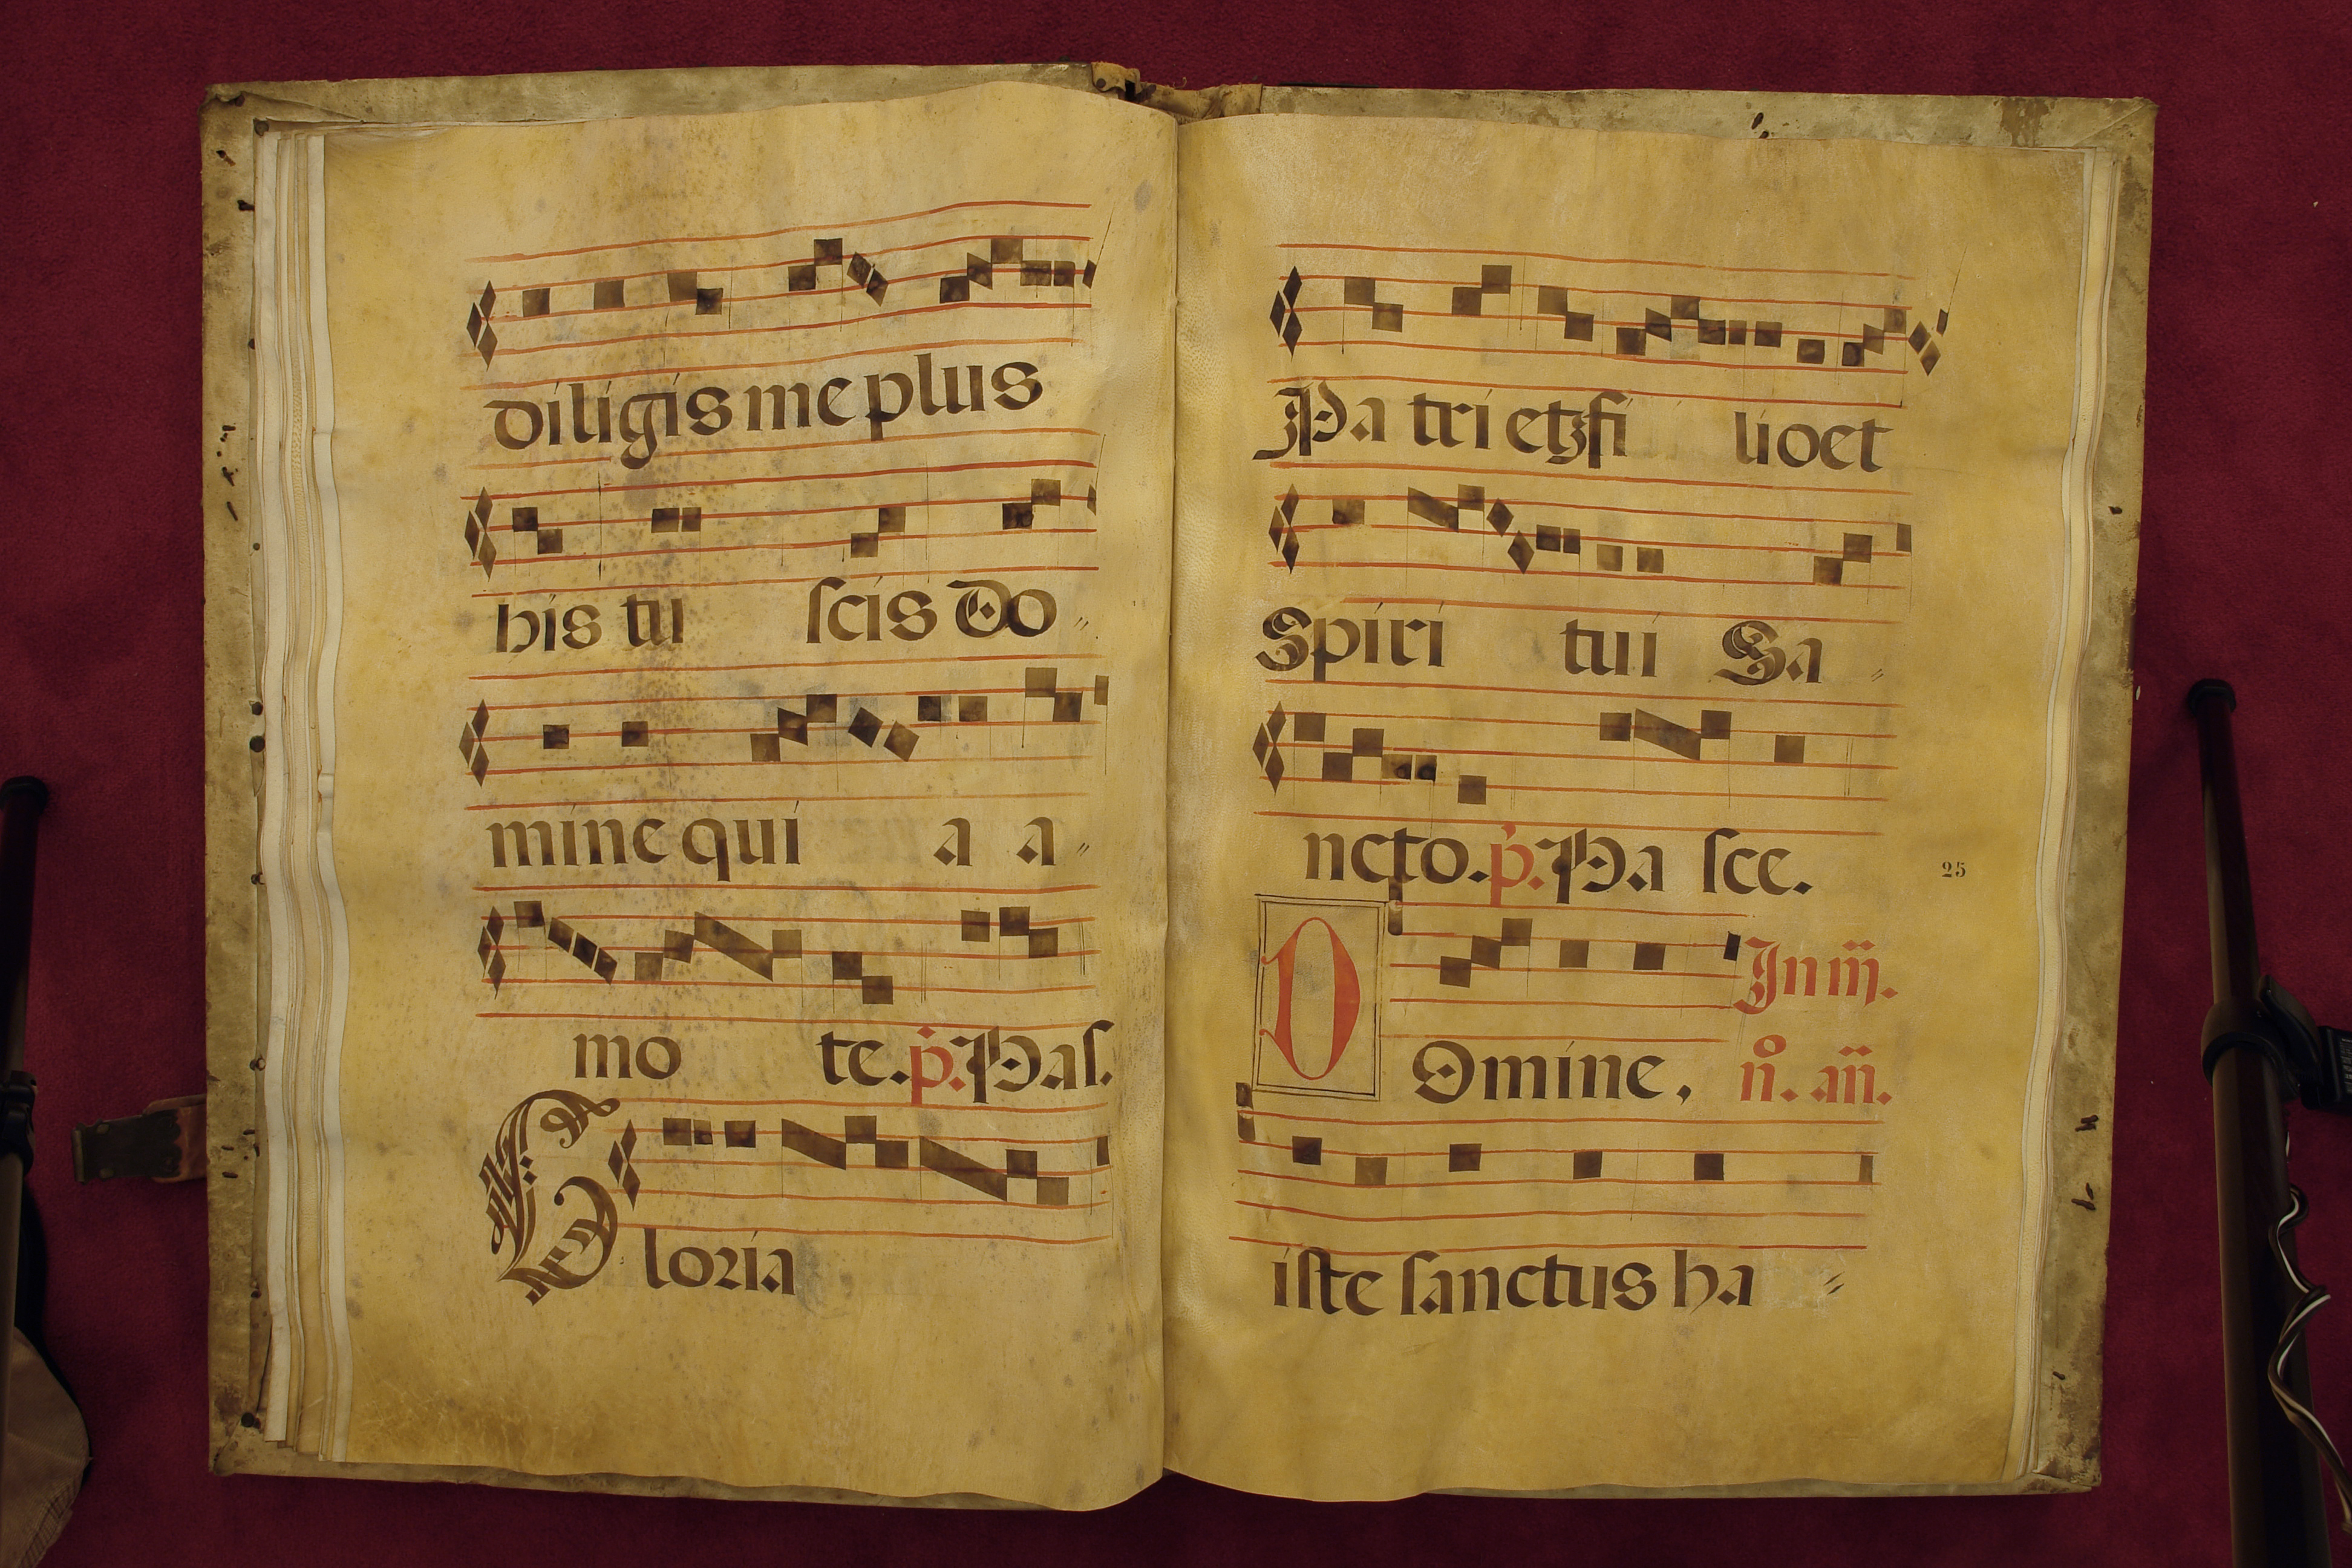 diligis me plus
his tu scis Do〃
mine qui a a〃
mo te. p̍. Pas.
Gloria
Pa tri etz fi lioet
Spiri tui Sa〃
ncto. p̍. Pa sce.
25
DOmine, In iij.
n̊. añ.
iste sanctus ha〃